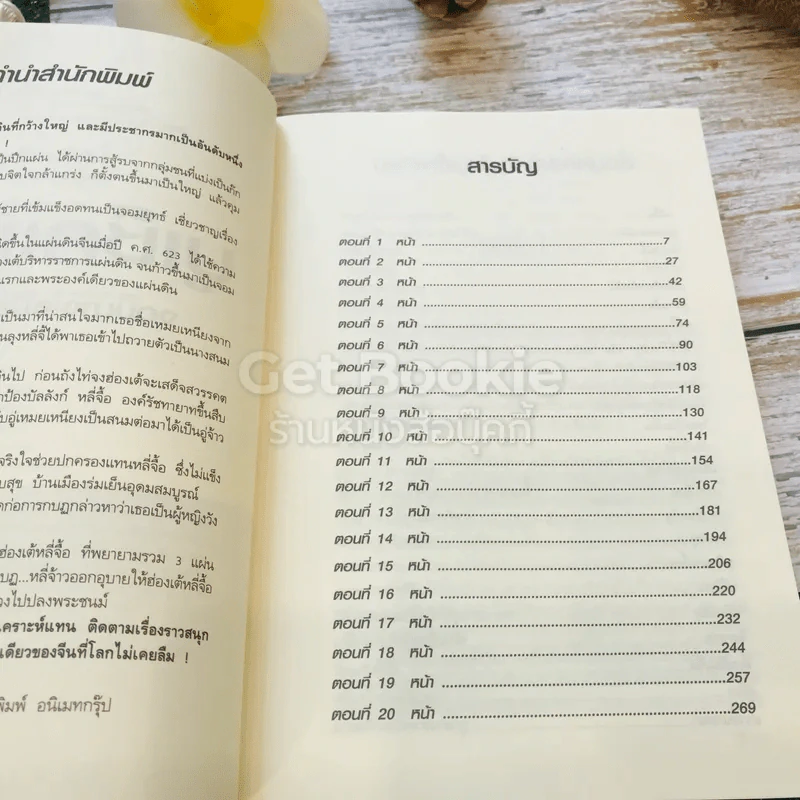 คำนำสำนักพิมพ์
ดินที่กว้างใหญ่ และมีประชากรมากเป็นอันดับหนึ่ง
!
เป็นปึกแผ่น ได้ผ่านการสู้รบจากกลุ่มชนที่แบ่งเป็นก๊ก
จิตใจกล้าแกร่ง ก็ตั้งตนขึ้นมาเป็นใหญ่ แล้วคุม
ชายที่เข้มแข็งอดทนเป็นจอมยุทธ์ เชี่ยวชาญเรื่อง
เกิดขึ้นในแผ่นดินจีนเมื่อปี ค.ศ. 623 ได้ใช้ความ
องเต้บริหารราชการแผ่นดิน จนก้าวขึ้นมาเป็นจอม
แรกและพระองค์เดียวของแผ่นดิน
เป็นมาที่น่าสนใจมากเธอชื่อเหมยเหนียงจาก
ลุงหลี่จี้ได้พาเธอเข้าไปถวายตัวเป็นนางสนม
ก่อนถังไท่จงฮ่องเต้จะเสด็จสวรรคต
ป้องบัลลังก์ หลี่จื้อ องค์รัชทายาทขึ้นสืบ
อู่เหมยเหนียงเป็นสนมต่อมาได้เป็นอู่จ้าว
จริงใจช่วยปกครองแทนหลี่จื้อ ซึ่งไม่แข็ง
บสุข บ้านเมืองร่มเย็นอุดมสมบูรณ์
ก่อการกบฏกล่าวหาว่าเธอเป็นผู้หญิงวัง
ฮ่องเต้หลี่จื้อ ที่พยายามรวม 3 แผ่น
บฏ...หลี่จ้าวออกอุบายให้ฮ่องเต้หลี่จื้อ
วงไปปลงพระชนม์
เคราะห์แทน ติดตามเรื่องราวสนุก
เดียวของจีนที่โลกไม่เคยลืม !
พิมพ์ อนิเมทกรุ๊ป
สารบัญ
ตอนที่ 1 หน้า ........................................7
ตอนที่ 2 หน้า ........................................27
ตอนที่ 3 หน้า ........................................42
ตอนที่ 4 หน้า ........................................59
ตอนที่ 5 หน้า ........................................74
ตอนที่ 6 หน้า ........................................90
ตอนที่ 7 หน้า ........................................103
ตอนที่ 8 หน้า ........................................118
ตอนที่ 9 หน้า ........................................130
ตอนที่ 10 หน้า ........................................141
ตอนที่ 11 หน้า ........................................154
ตอนที่ 12 หน้า ........................................167
ตอนที่ 13 หน้า ........................................181
ตอนที่ 14 หน้า ........................................194
ตอนที่ 15 หน้า ........................................206
ตอนที่ 16 หน้า ........................................220
ตอนที่ 17 หน้า ........................................232
ตอนที่ 18 หน้า ........................................244
ตอนที่ 19 หน้า ........................................257
ตอนที่ 20 หน้า ........................................269
Get Bookie
ร้านหนังสือบุ๊คกี้